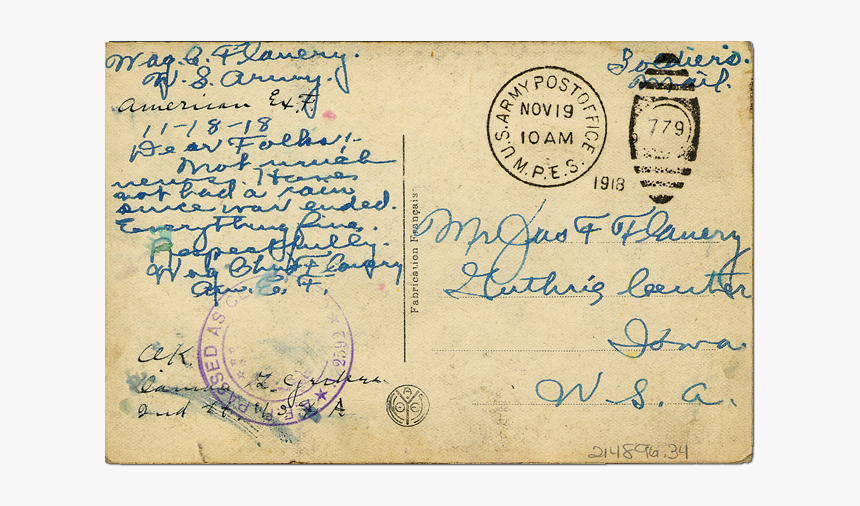 Wag. C. Flanery.
U.S. Army.
American Ex. F.
11-18-18
Dear Folks:-
Not much
news. Have
not had a rain
since war ended.
Everything fine.
Respectfully.
Wag Chas Flanery
Am. E. F.
OK.
2nd Lt. U S A
PASSED AS CENSORED
2592
Fabrication Français
U.S. ARMY POST OFFICE
NOV 19
10 AM
M.P.E.S.
1918
779
Soldier's.
Mail.
Mr Jas F Flanery
Guthrie Center
Iowa
U. S. A.
214896.34